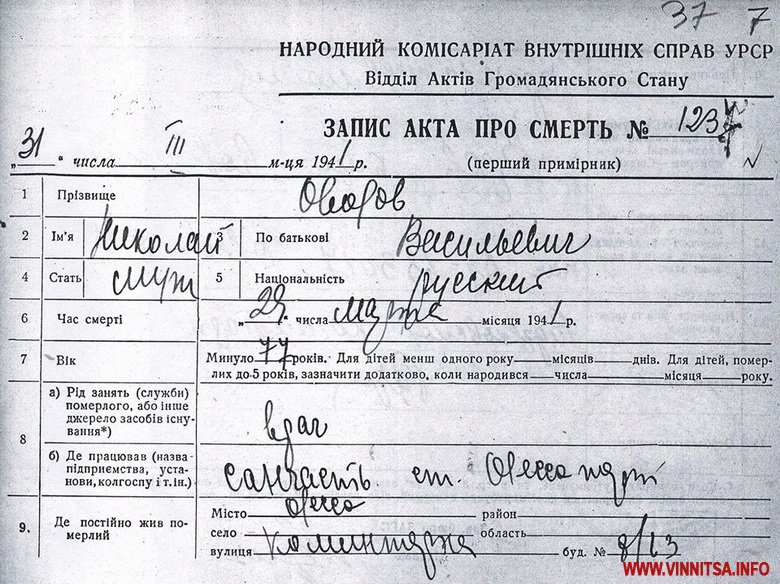 37 7
НАРОДНИЙ КОМІСАРІАТ ВНУТРІШНІХ СПРАВ УРСР
Відділ Актів Громадянського Стану
ЗАПИС АКТА ПРО СМЕРТЬ № 1237
„31 “ числа III м-ця 1941 р. (перший примірник)
1 Прізвище
2 Ім'я Николай 3 По батькові Васильевич
4 Стать муж 5 Національність русский
6 Час смерті „29 “ числа марта місяця 1941 р.
7 Вік Минуло 77 років. Для дітей менш одного року місяців днів. Для дітей, помер-
лих до 5 років, зазначити додатково, коли народився числа місяця року.
8 а) Рід занять (служби) померлого, або інше джерело засобів існування*) врач
б) Де працював (назва підприємства, установи, колгоспу і т. ін.) санчасть ст. Одесса порт
9. Де постійно жив померлий Місто Одесса район
село область
вулиця буд. № 8/13
WWW.VINNITSA.INFO